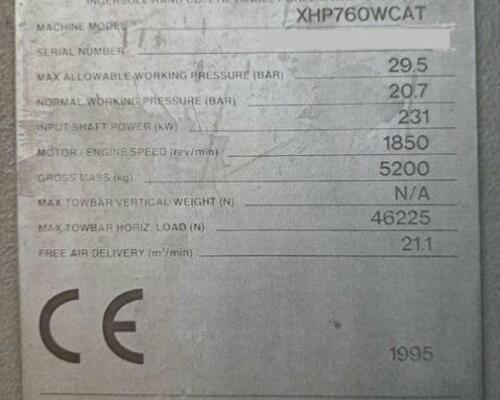 INGERSOLL-RAND CO. LTD.
MACHINE MODEL XHP760WCAT
SERIAL NUMBER
MAX ALLOWABLE WORKING PRESSURE (BAR) 29.5
NORMAL WORKING PRESSURE (BAR) 20.7
INPUT SHAFT POWER (kW) 231
MOTOR / ENGINE SPEED (rev/min) 1850
GROSS MASS (kg) 5200
MAX TOWBAR VERTICAL WEIGHT (N) N/A
MAX TOWBAR HORIZ. LOAD (N) 46225
FREE AIR DELIVERY (m³/min) 21.1
CE 1995